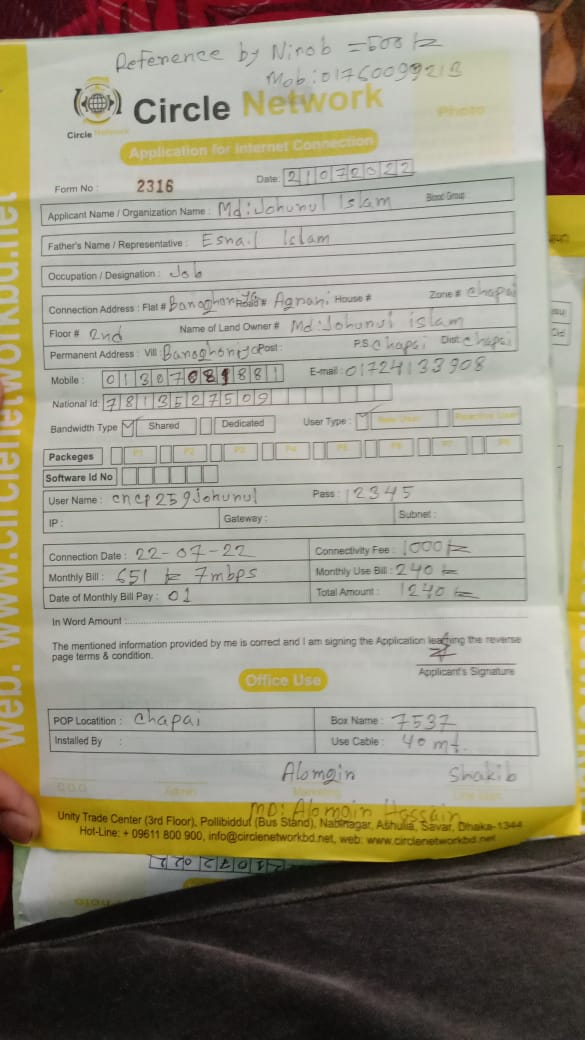 Reference by Nirob = 500 tk
Mob: 01760099213
Circle Network
Circle Network
Photo
Application for Internet Connection
Form No : 2316 Date: 21072022
Applicant Name / Organization Name : Md: Johunul Islam Blood Group
Father's Name / Representative : Esnail Islam
Occupation / Designation : Job
Connection Address : Flat # Road # Agnani House # Zone # Chapai
Floor # 2nd Name of Land Owner # Md: Johunul islam
Permanent Address : Vill : Post : P.S. Chapai Dist: Chapai
Mobile : 01307081881 E-mail : 01724133908
National Id: 7813527509
Bandwidth Type Shared Dedicated User Type : New User Reactive User
Packeges P1 P2 P3 P4 P5 P6 P7 P8
Software Id No
User Name : cncp259johunul Pass : 12345
IP : Gateway : Subnet :
Connection Date : 22-07-22 Connectivity Fee : 1000 tk
Monthly Bill : 651 tk 7mbps Monthly Use Bill : 240 tk
Date of Monthly Bill Pay : 01 Total Amount : 1240 tk
In Word Amount :
The mentioned information provided by me is correct and I am signing the Application learning the reverse
page terms & condition.
Applicant's Signature
Office Use
POP Locatition : Chapai Box Name : 7537
Installed By : Use Cable : 40 mt.
Alomgin Shakib
C.O.O Admin Marketing
MD: Alomgin Hossain
Unity Trade Center (3rd Floor), Pollibiddut (Bus Stand), Nabinagar, Ashulia, Savar, Dhaka-1344
Hot-Line: + 09611 800 900, info@circlenetworkbd.net, web: www.circlenetworkbd.net
web: www.circlenetworkbd.net